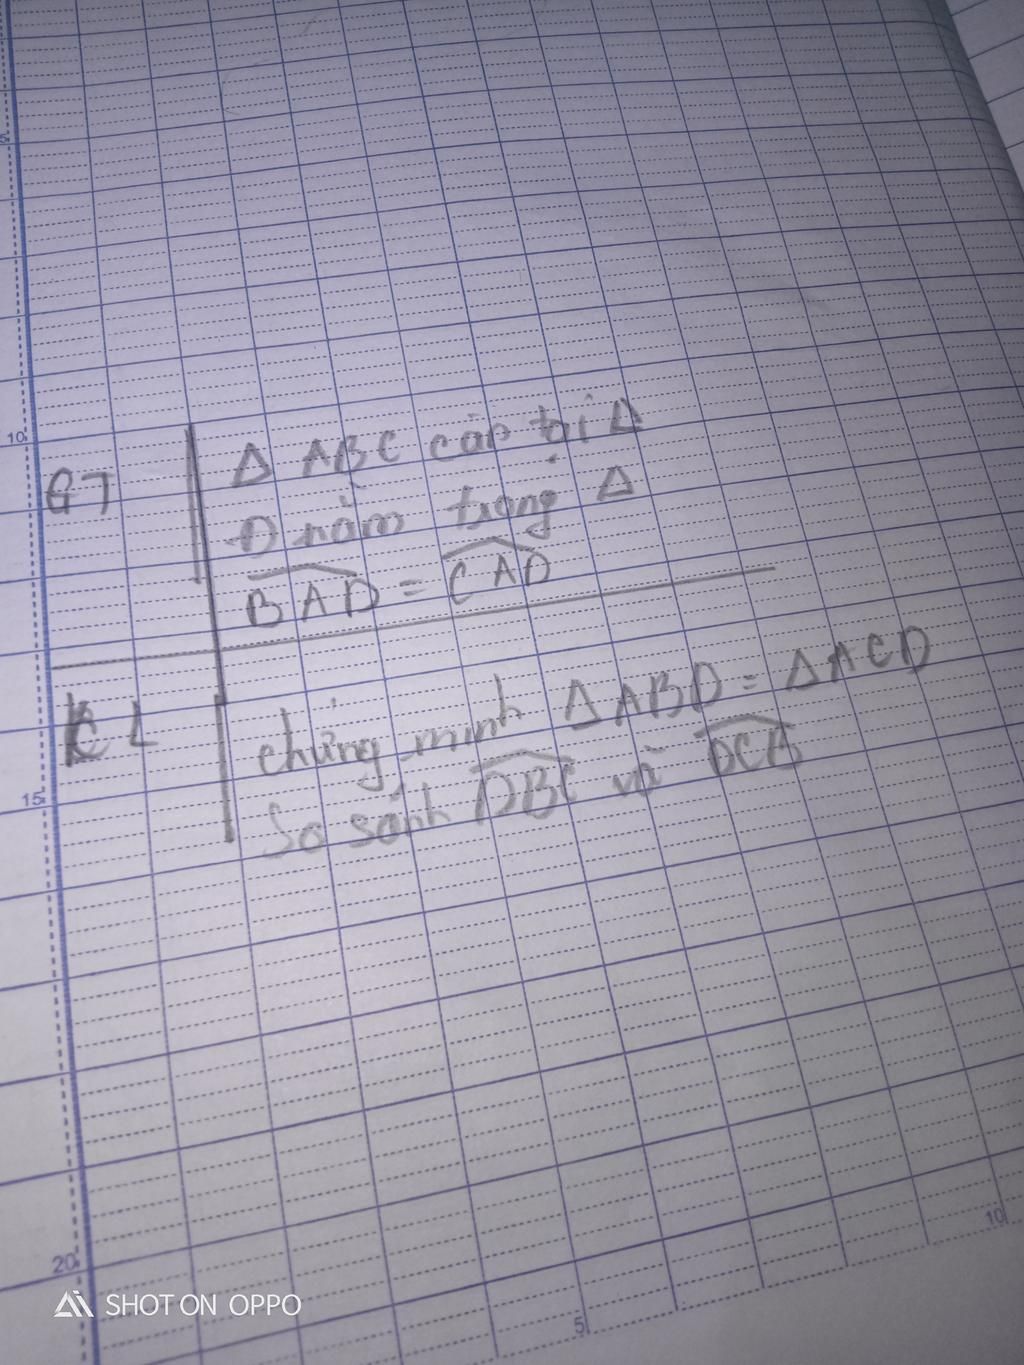 10
GT
Δ ABC cân tại A
D nằm trong Δ
BAD = CAD
KL
chứng minh Δ ABD = Δ ACD
15
So sánh DBC và DCB
20
5
10
SHOT ON OPPO